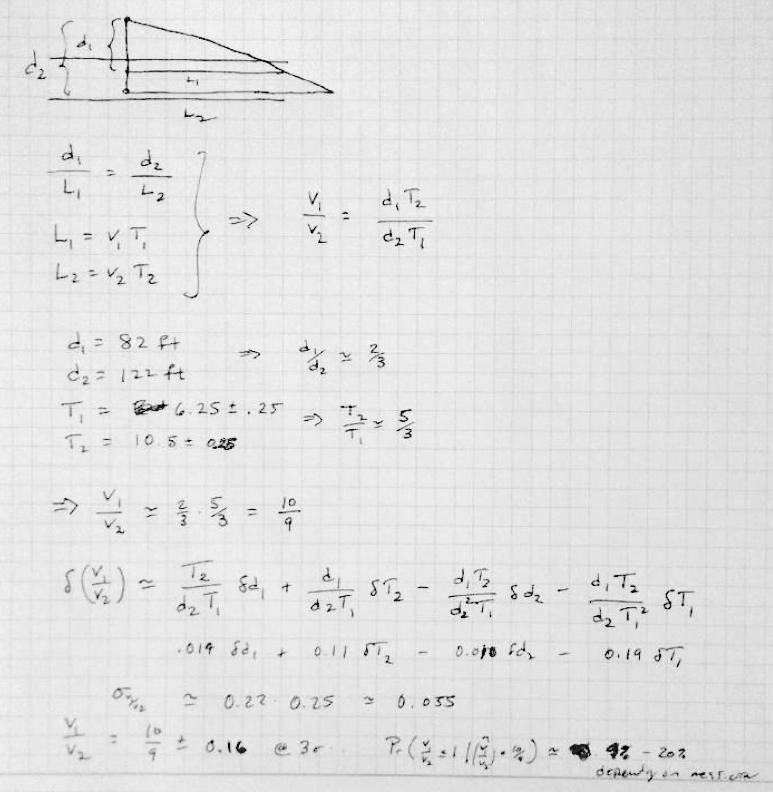 d₁
d₂
L₁
L₂
d₁/L₁ = d₂/L₂
L₁ = v₁ T₁
L₂ = v₂ T₂
⇒ v₁/v₂ = d₁T₂/d₂T₁
d₁ = 82 ft
d₂ = 122 ft
⇒ d₁/d₂ ≃ 2/3
T₁ = 6.25 ± .25
T₂ = 10.5 ± 0.25
⇒ T₂/T₁ ≃ 5/3
⇒ v₁/v₂ ≃ 2/3 · 5/3 = 10/9
δ(v₁/v₂) ≃ T₂/d₂T₁ δd₁ + d₁/d₂T₁ δT₂ − d₁T₂/d₂²T₁ δd₂ − d₁T₂/d₂T₁² δT₁
.019 δd₁ + 0.11 δT₂ − δd₂ − 0.19 δT₁
≃ 0.22 · 0.25 ≃ 0.055
v₁/v₂ = 10/9 ± 0.16 @ 3σ
Pr ≃ − 20%
depending on